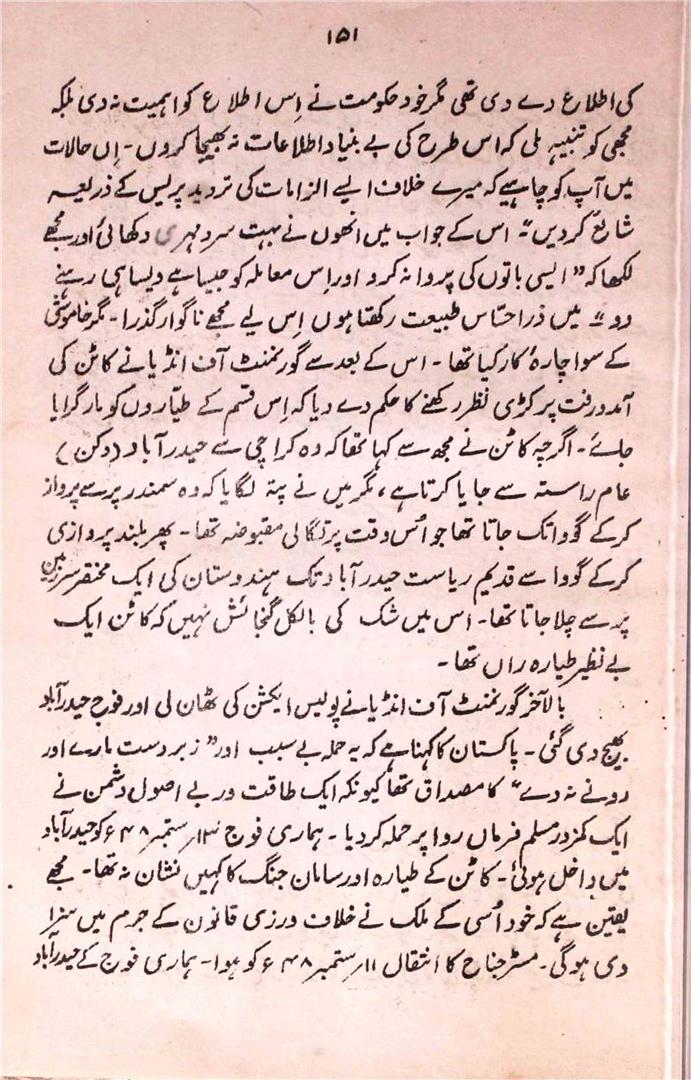 ۱۵۱
کی اطلاع دے دی تھی مگر خود حکومت نے اِس اطلاع کو اہمیت نہ دی بلکہ
مجھی کو تنبیہہ ملی کہ اس طرح کی بے بنیاد اطلاعات نہ بھیجا کروں۔ اِن حالات
میں آپ کو چاہیے کہ میرے خلاف ایسے الزامات کی تردید پریس کے ذریعہ
شایع کر دیں"۔ اس کے جواب میں انھوں نے بہت سرد مہری دکھائی اور مجھے
لکھا کہ "ایسی باتوں کی پروا نہ کرو اور اِس معاملہ کو جیسا ہے ویسا ہی رہنے
دو"۔ میں ذرا حسّاس طبیعت رکھتا ہوں اِس لیے مجھے ناگوار گذرا۔ مگر خاموشی
کے سوا چارۂ کار کیا تھا۔ اس کے بعد سے گورنمنٹ آف انڈیا نے کاٹن کی
آمدورفت پر کڑی نظر رکھنے کا حکم دے دیا کہ اِس قسم کے طیّاروں کو مار گرایا
جائے۔ اگرچہ کاٹن نے مجھ سے کہا تھا کہ وہ کراچی سے حیدرآباد (دکن)
عام راستہ سے جایا کرتا ہے، مگر میں نے پتہ لگایا کہ وہ سمندر پر سے پرواز
کر کے گووا تک جاتا تھا جو اُس وقت پرتگالی مقبوضہ تھا۔ پھر بلند پروازی
کر کے گووا سے قدیم ریاست حیدرآباد تک ہندوستان کی ایک مختصر سرزمین
پر سے چلا جاتا تھا۔ اس میں شک کی بالکل گنجائش نہیں کہ کاٹن ایک
بے نظیر طیارہ راں تھا۔
بالآخر گورنمنٹ آف انڈیا نے پولیس ایکشن کی ٹھان لی اور فوج حیدرآباد
بھیج دی گئی۔ پاکستان کا کہنا ہے کہ یہ حملہ بے سبب اور "زبردست مارے اور
رونے نہ دے" کا مصداق تھا کیونکہ ایک طاقت ور بے اصول دشمن نے
ایک کمزور مسلم فرماں روا پر حملہ کر دیا۔ ہماری فوج ۱۳ ستمبر ۴۸ء کو حیدرآباد
میں داخل ہوئی۔ کاٹن کے طیارہ اور سامان جنگ کا کہیں نشان نہ تھا۔ مجھے
یقین ہے کہ خود اُسی کے ملک نے خلاف ورزی قانون کے جرم میں سزا
دی ہوگی۔ مسٹر جناح کا انتقال ۱۱ ستمبر ۴۸ء کو ہوا۔ ہماری فوج کے حیدرآباد